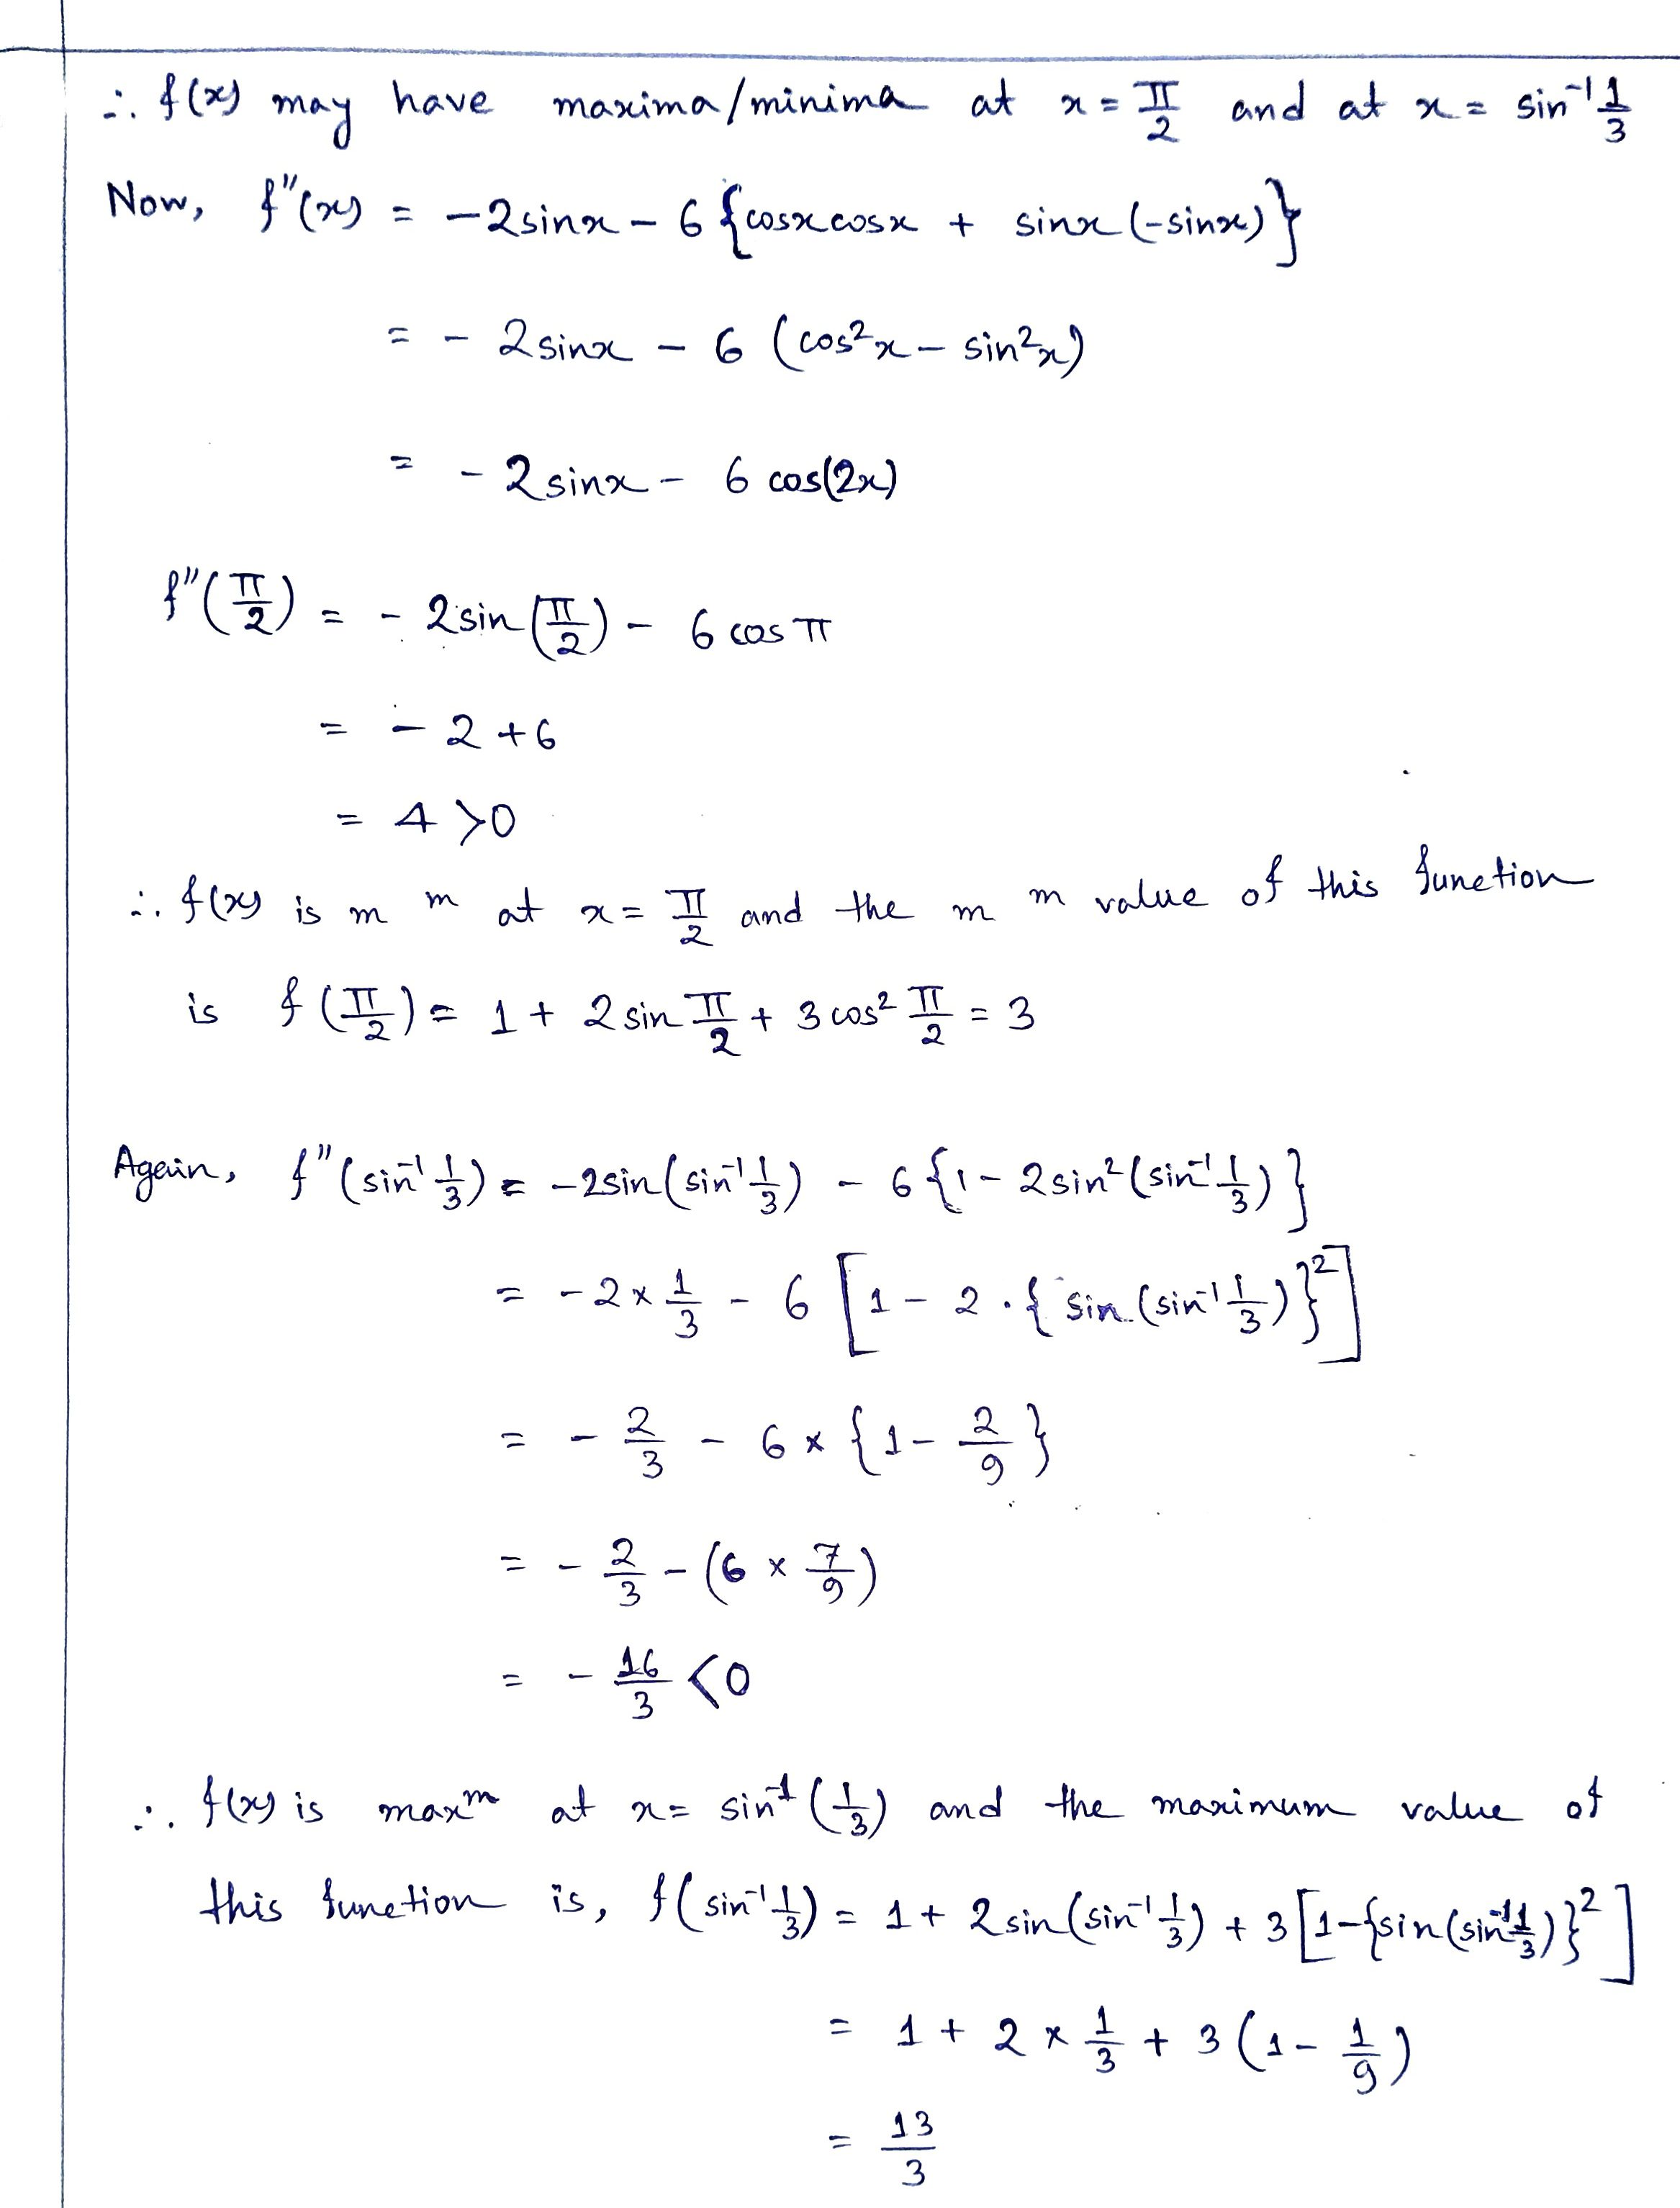 ∴ f(x) may have maxima/minima at x = π/2 and at x = sin⁻¹ 1/3
Now, f″(x) = −2sinx − 6{cosx cosx + sinx(−sinx)}
= − 2sinx − 6 (cos²x − sin²x)
= − 2sinx − 6 cos(2x)
f″(π/2) = − 2sin(π/2) − 6 cos π
= − 2 + 6
= 4 >0
∴ f(x) is m m at x = π/2 and the m m value of this function
is f(π/2) = 1 + 2 sin π/2 + 3 cos² π/2 = 3
Again, f″(sin⁻¹ 1/3) = −2sin(sin⁻¹ 1/3) − 6{1 − 2sin²(sin⁻¹ 1/3)}
= −2 × 1/3 − 6 [1 − 2 · {sin (sin⁻¹ 1/3)}²]
= − 2/3 − 6 × {1 − 2/9}
= − 2/3 − (6 × 7/9)
= − 16/3 <0
∴ f(x) is maxᵐ at x = sin⁻¹(1/3) and the maximum value of
this function is, f(sin⁻¹ 1/3) = 1 + 2 sin(sin⁻¹ 1/3) + 3 [1−{sin(sin⁻¹ 1/3)}²]
= 1 + 2 × 1/3 + 3 (1 − 1/9)
= 13/3